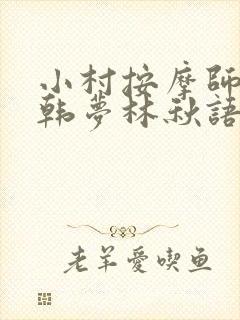 小村按摩師
韩夢林秋語
老羊愛喫鱼